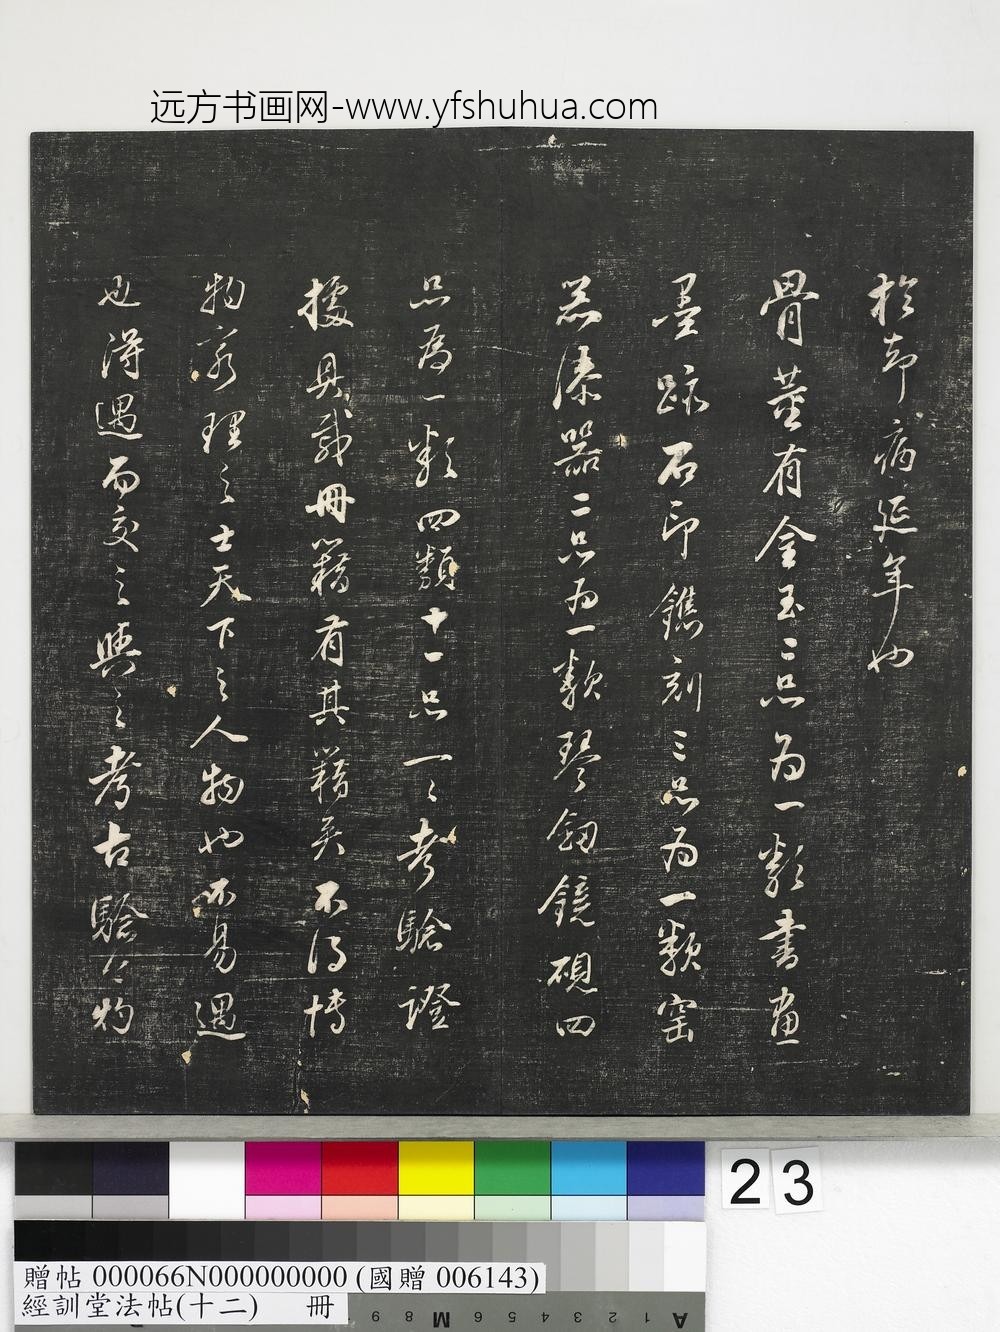 远方书画网-www.yfshuhua.com
於却病延年也
骨董有金玉二品为一類書畫
墨跡石印鐫刻三品为一類窑
器漆器二品为一類琴劔鏡硯四
品為一類四類十一品一一考驗證
據具載冊籍有其籍矣不得博
物窮理之士天下之人物也不易遇
也得遇而交之與之考古驗今物
23
贈帖 000066N000000000 (國贈 006143)
經訓堂法帖(十二) 冊
A 1 2 3 4 5 6 M 8 9